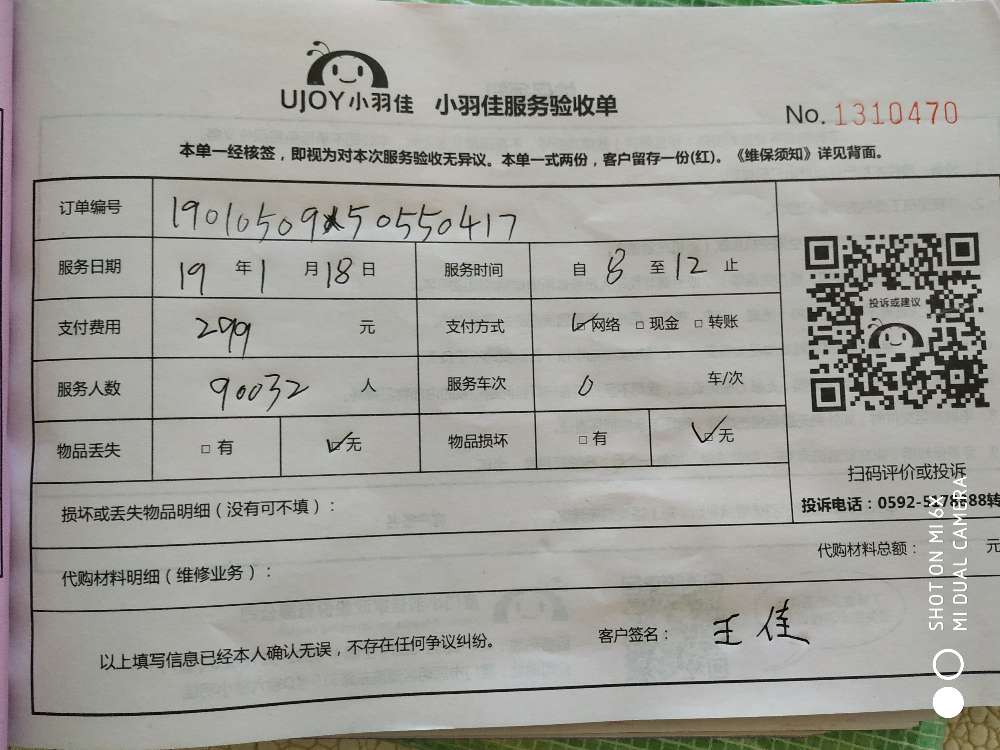 UJOY小羽佳 小羽佳服务验收单
No. 1310470
本单一经核签，即视为对本次服务验收无异议。本单一式两份，客户留存一份(红)。《维保须知》详见背面。
订单编号
服务日期 19 年 1 月 18 日 服务时间 自 8 至 12 止
支付费用 299 元 支付方式 ☑网络 □现金 □转账
服务人数 90032 人 服务车次 0 车/次
物品丢失 □有 ☑无 物品损坏 □有 ☑无
投诉或建议
扫码评价或投诉
投诉电话：0592-
损坏或丢失物品明细（没有可不填）：
代购材料明细（维修业务）：
代购材料总额： 元
以上填写信息已经本人确认无误，不存在任何争议纠纷。
客户签名： 王佳
SHOT ON MI 6X
MI DUAL CAMERA